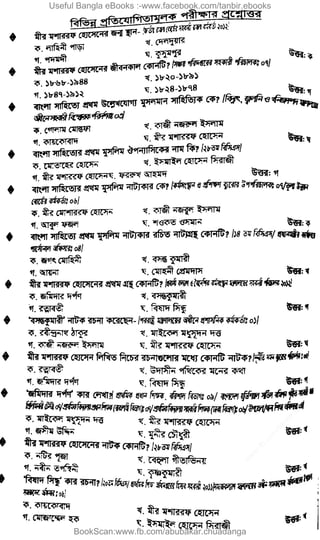 Useful Bangla eBooks :-www.facebook.com/tanbir.ebooks
বিভিন্ন প্রতিযোগিতামূলক পরীক্ষার প্রশ্নোত্তর
♦ মীর মশাররফ হোসেনের জন্ম স্থান-
ক. লাহিনী পাড়া খ. দেলদুয়ার
গ. পদমদী ঘ. কুমুদপুর উত্তর: ক
♦ মীর মশাররফ হোসেনের জীবনকাল কোনটি?
ক. ১৮৬৮-১৯৪৪ খ. ১৮২০-১৮৯১
গ. ১৮৪৭-১৯১২ ঘ. ১৮২৪-১৮৭৪ উত্তর: গ
♦ বাংলা সাহিত্যে প্রথম উল্লেখযোগ্য মুসলমান সাহিত্যিক কে?
ক. গোলাম মোস্তফা খ. কাজী নজরুল ইসলাম
গ. কায়কোবাদ ঘ. মীর মশাররফ হোসেন উত্তর: ঘ
♦ বাংলা সাহিত্যের প্রথম মুসলিম ঔপন্যাসিকের নাম কি?
ক. মোতাহের হোসেন খ. ইসমাইল হোসেন সিরাজী
গ. মীর মশাররফ হোসেন ঘ. ফররুখ আহমদ উত্তর: গ
♦ বাংলা সাহিত্যের প্রথম মুসলিম নাট্যকার কে?
ক. মীর মোশাররফ হোসেন খ. কাজী নজরুল ইসলাম
গ. আবুল ফজল ঘ. শওকত ওসমান উত্তর: ক
♦ বাংলা সাহিত্যে প্রথম মুসলিম নাট্যকার রচিত নাট্যগ্রন্থ কোনটি?
ক. জগৎ মোহিনী খ. বসন্ত কুমারী
গ. আয়না ঘ. মোহিনী প্রেমদাস উত্তর: খ
♦ মীর মশাররফ হোসেনের প্রথম গ্রন্থ কোনটি?
ক. জমিদার দর্পণ খ. বসন্তকুমারী
গ. রত্নবতী ঘ. বিষাদ সিন্ধু উত্তর: গ
♦ 'বসন্তকুমারী' নাটক রচনা করেছেন-
ক. রবীন্দ্রনাথ ঠাকুর খ. মাইকেল মধুসূদন দত্ত
গ. কাজী নজরুল ইসলাম ঘ. মীর মশাররফ হোসেন উত্তর: ঘ
♦ মীর মশাররফ হোসেন লিখিত নিচের রচনাগুলোর মধ্যে কোনটি নাটক?
ক. রত্নবতী খ. উদাসীন পথিকের মনের কথা
গ. জমিদার দর্পণ ঘ. বিষাদ সিন্ধু উত্তর: গ
♦ 'জমিদার দর্পণ' কার লেখা?
ক. মাইকেল মধুসূদন দত্ত খ. মীর মশাররফ হোসেন
গ. জসীম উদ্দিন ঘ. মুনীর চৌধুরী উত্তর: খ
♦ মীর মশাররফ হোসেনের নাটক কোনটি?
ক. নটির পূজা খ. বেহুলা গীতাভিনয়
গ. নবীন তপস্বিনী ঘ. কৃষ্ণকুমারী উত্তর: খ
♦ 'বিষাদ সিন্ধু' কার রচনা?
ক. কায়কোবাদ খ. মীর মশাররফ হোসেন
গ. মোজাম্মেল হক ঘ. ইসমাইল হোসেন সিরাজী উত্তর: খ
BookScan:www.fb.com/abubakar.chuadanga